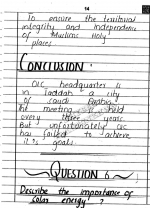 14
To ensure the territorial
integrity and independence
of Muslims Holy
places.
CONCLUSION:
OIC headquarter is
in Jaddah a city
of Saudi Arabia.
Its meeting is held
every three years
But unfortunately OIC
has failed to achieve
its goals.
QUESTION 6
Describe the importance of
solar energy?